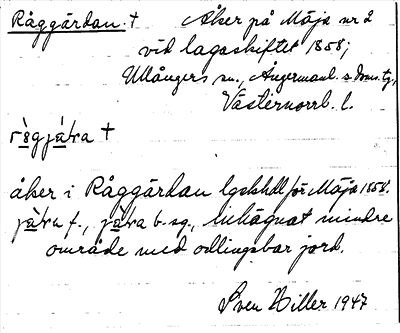 Råggärdan. † Åker på Mäja nr 2
vid lagaskiftet 1858;
Ullångers sn., Ångermanl. s. doms. tg.,
Västernorrl. l.
åker i Råggärdan lgskhdl för Mäja 1858.
f., b. sg., inhägnat mindre
område med odlingsbar jord.
Sven Hiller 1947